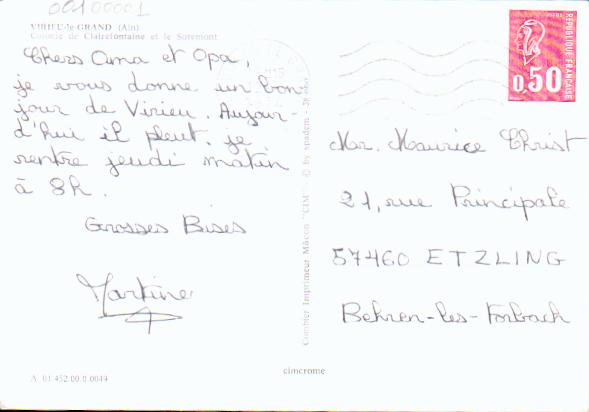 00100001
VIRIEU-le GRAND (Ain)
Colonie de Clairefontaine et le Soremont
Chers Oma et Opa,
je vous donne un bon-
jour de Virieu. Aujour-
d'hui il pleut. je
rentre jeudi matin
à 8h.
Grosses Bises
Martine
A 01.452.00.0.0049
Combier Imprimeur Mâcon "CIM" © by spadem
cimcrome
0,50
RÉPUBLIQUE FRANÇAISE
Mr. Maurice Christ
21, rue Principale
57460 ETZLING
Behren-les-Forbach